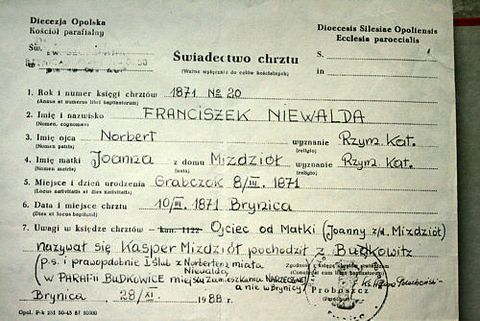 Diecezja Opolska
Kościół parafialny
Św.
Dioecesis Silesiae Opoliensis
Ecclesia paroecialis
S.
in
Świadectwo chrztu
(Ważne wyłącznie do celów kościelnych)
1. Rok i numer księgi chrztów 1871 No 20
(Annus et numerus libri baptizatorum)
2. Imię i nazwisko FRANCISZEK NIEWALDA
(Nomen, cognomen)
3. Imię ojca Norbert wyznanie Rzym. Kat.
(Nomen patris) (religio)
4. Imię matki Joanna z domu Mizdziół wyznanie Rzym. Kat.
(Nomen matris) (religio)
5. Miejsce i dzień urodzenia Grabczok 8/III. 1871
(Locus nativitatis et dies nativitatis)
6. Data i miejsce chrztu 10/III. 1871 Brynica
(Dies et locus baptismi)
7. Uwagi w księdze chrztów kan. 1122 Ojciec od Matki (Joanny z/d. Mizdziół)
nazywał się Kasper Mizdziół pochodził z Budkowitz
(p.s. i prawopodobnie 1 ślub z Norbertem miała
Niewaldą,
w PARAFII BUDKOWICE miejscu zamieszkania NARZECZONEJ
a nie w Brynicy)
Proboszcz
Brynica 28/XI. 1988 r.
Opol. P-k